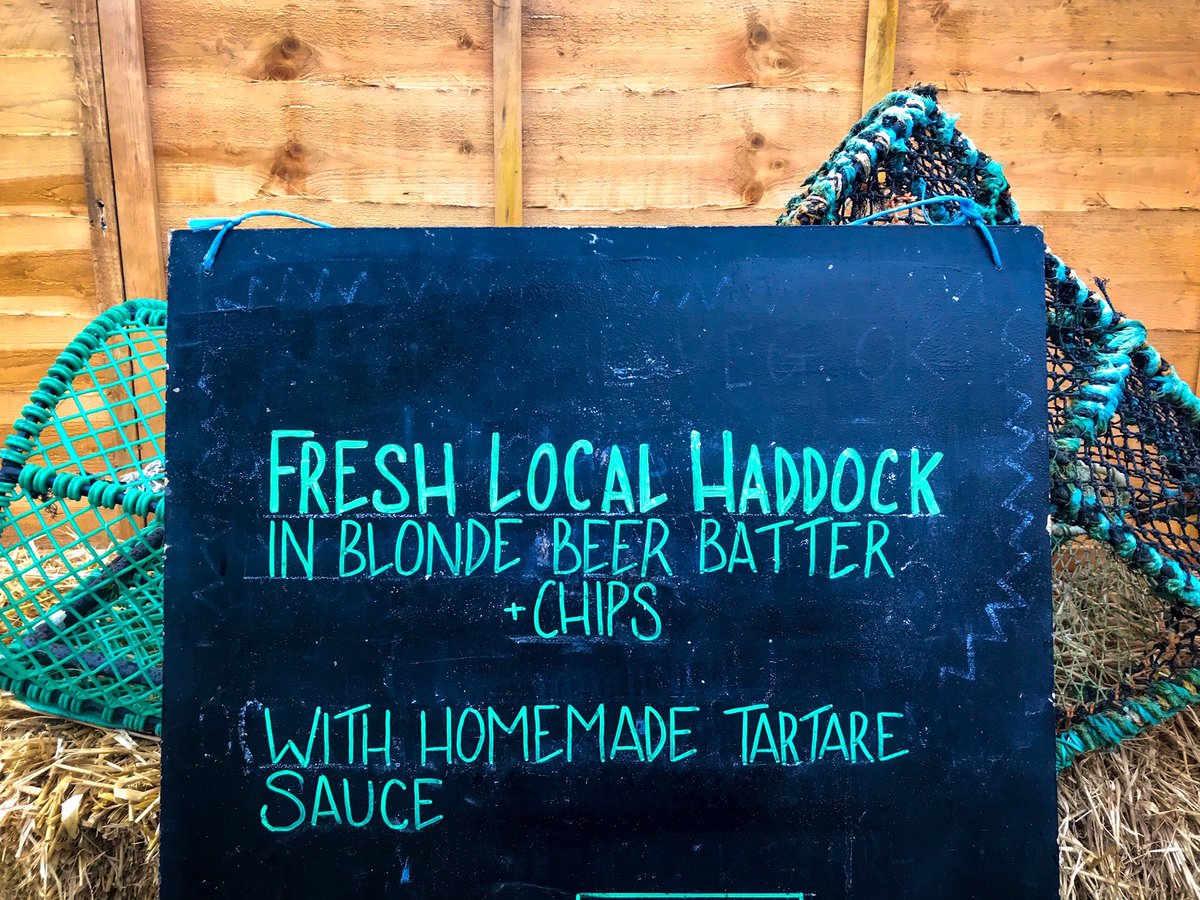 FRESH LOCAL HADDOCK
IN BLONDE BEER BATTER
+ CHIPS
WITH HOMEMADE TARTARE
SAUCE